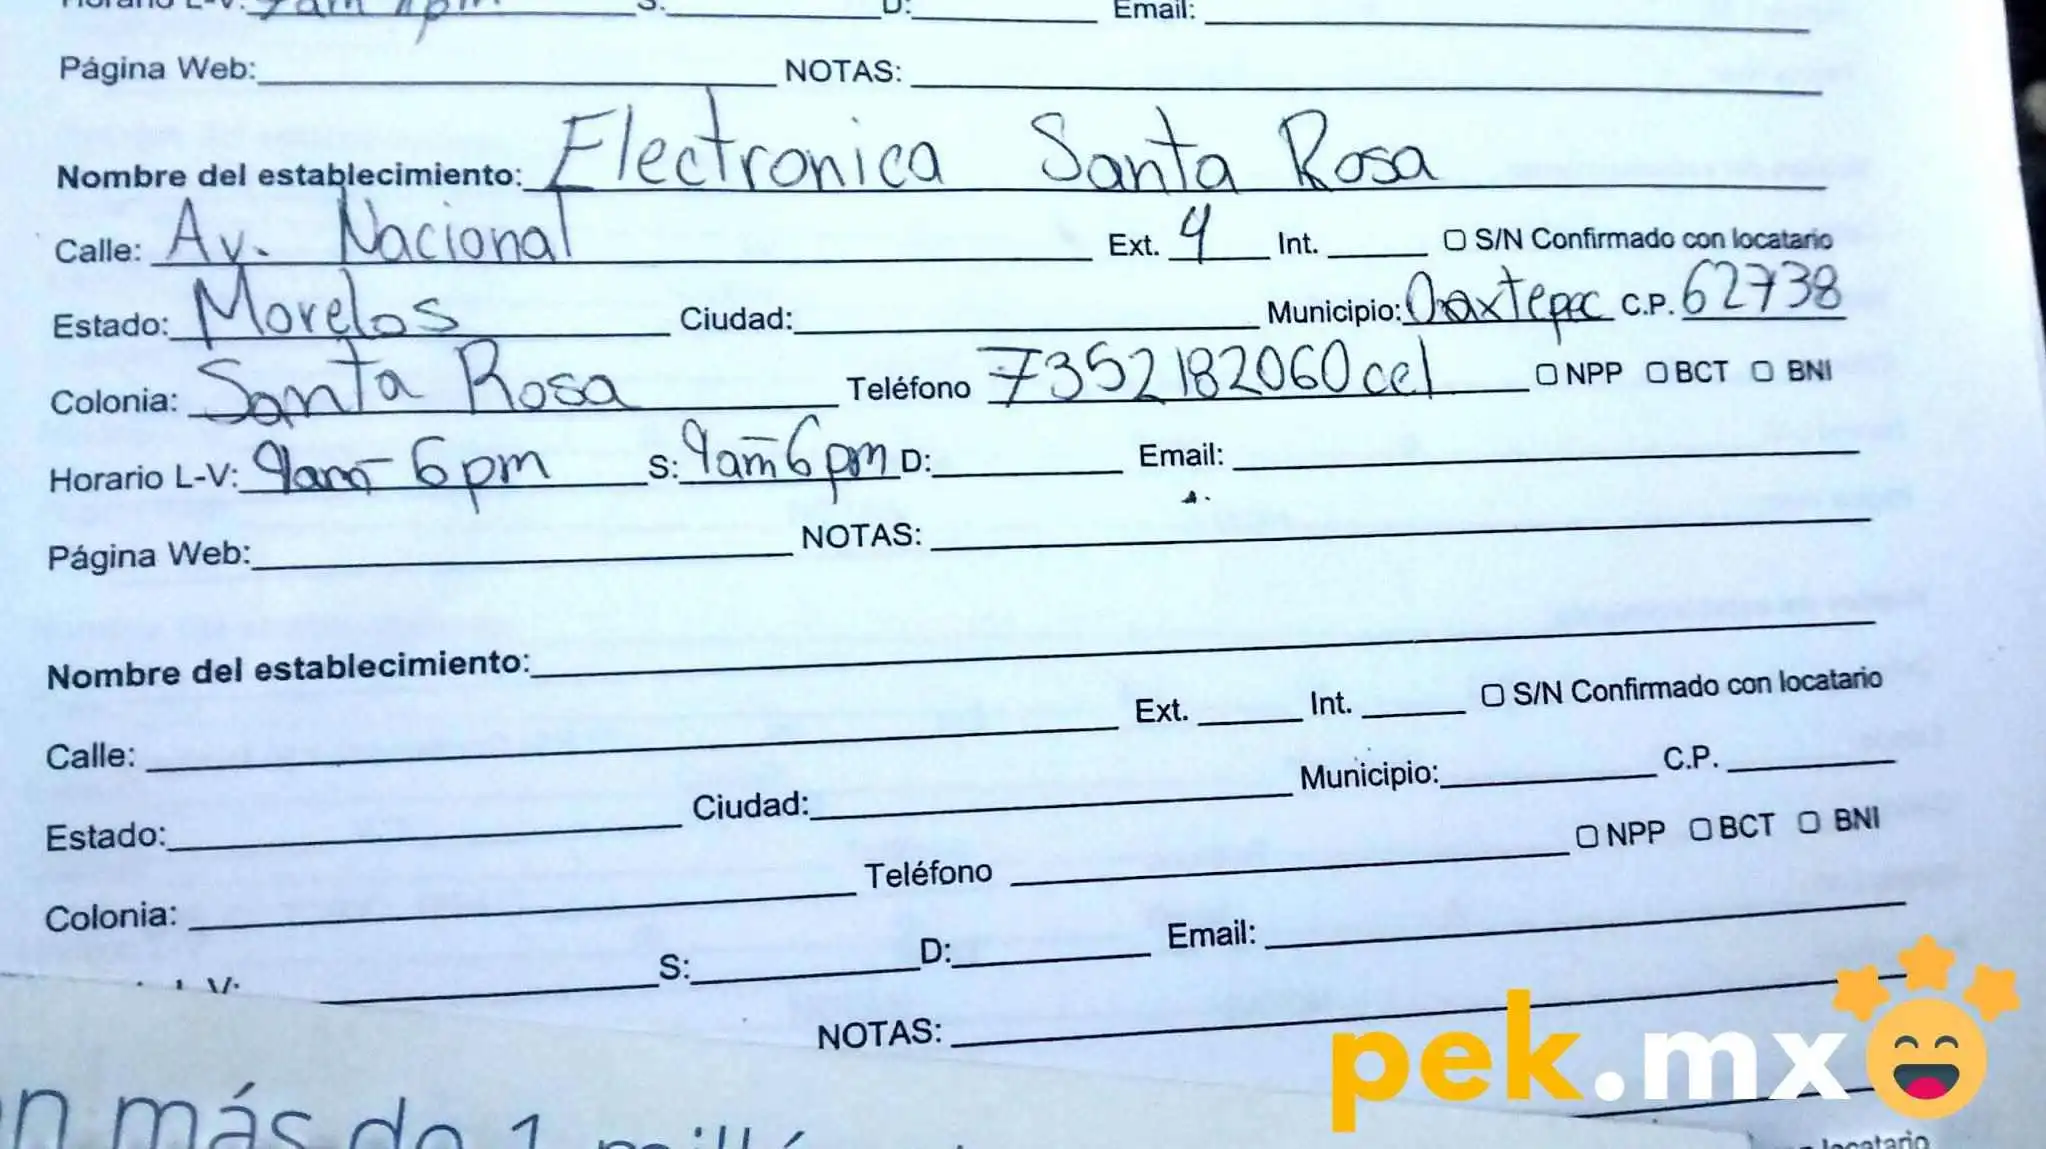 Horario L-V: 9am S: D: Email:
Página Web: NOTAS:
Nombre del establecimiento: Electronica Santa Rosa
Calle: Av. Nacional Ext. 4 Int. ☐ S/N Confirmado con locatario
Estado: Morelos Ciudad: Municipio: Oaxtepec C.P. 62738
Colonia: Santa Rosa Teléfono 7352182060 cel ☐ NPP ☐ BCT ☐ BNI
Horario L-V: 9am-6pm S: 9am-6pm D: Email:
Página Web: NOTAS:
Nombre del establecimiento:
Calle: Ext. Int. ☐ S/N Confirmado con locatario
Estado: Ciudad: Municipio: C.P.
Colonia: Teléfono ☐ NPP ☐ BCT ☐ BNI
L-V: S: D: Email:
NOTAS:
pek.mx
más de 1
locatario